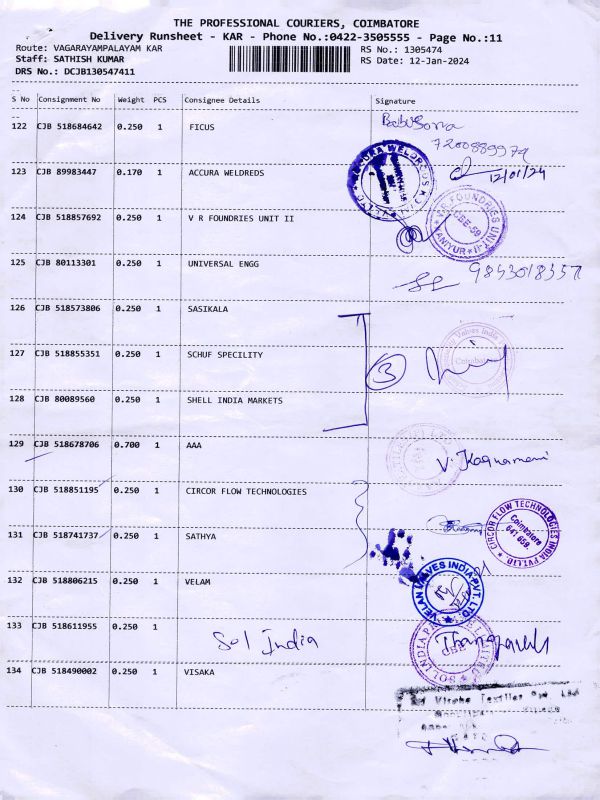 THE PROFESSIONAL COURIERS, COIMBATORE
Delivery Runsheet - KAR - Phone No.:0422-3505555 - Page No.:11
Route: VAGARAYAMPALAYAM KAR
RS No.: 1305474
Staff: SATHISH KUMAR
RS Date: 12-Jan-2024
DRS No.: DCJB130547411
S No Consignment No Weight PCS Consignee Details Signature
122 CJB 518684642 0.250 1 FICUS
7200889979
123 CJB 89983447 0.170 1 ACCURA WELDREDS
12/01/24
124 CJB 518857692 0.250 1 V R FOUNDRIES UNIT II
125 CJB 80113301 0.250 1 UNIVERSAL ENGG
126 CJB 518573806 0.250 1 SASIKALA
127 CJB 518855351 0.250 1 SCHUF SPECILITY
3
Coimbatore
128 CJB 80089560 0.250 1 SHELL INDIA MARKETS
129 CJB 518678706 0.700 1 AAA
130 CJB 518851195 0.250 1 CIRCOR FLOW TECHNOLOGIES
CIRCOR FLOW TECHNOLOGIES INDIA PVT.LTD.
Coimbatore
641 659.
131 CJB 518741737 0.250 1 SATHYA
132 CJB 518806215 0.250 1 VELAM
VELAN VALVES INDIA PVT. LTD.
133 CJB 518611955 0.250 1
Sol India
134 CJB 518490002 0.250 1 VISAKA